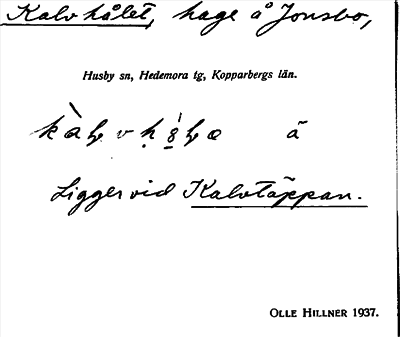 Kalvhålet, hage å Jonsbo,
Husby sn, Hedemora tg, Kopparbergs län.
ä
Ligger vid Kalvtäppan.
OLLE HILLNER 1937.